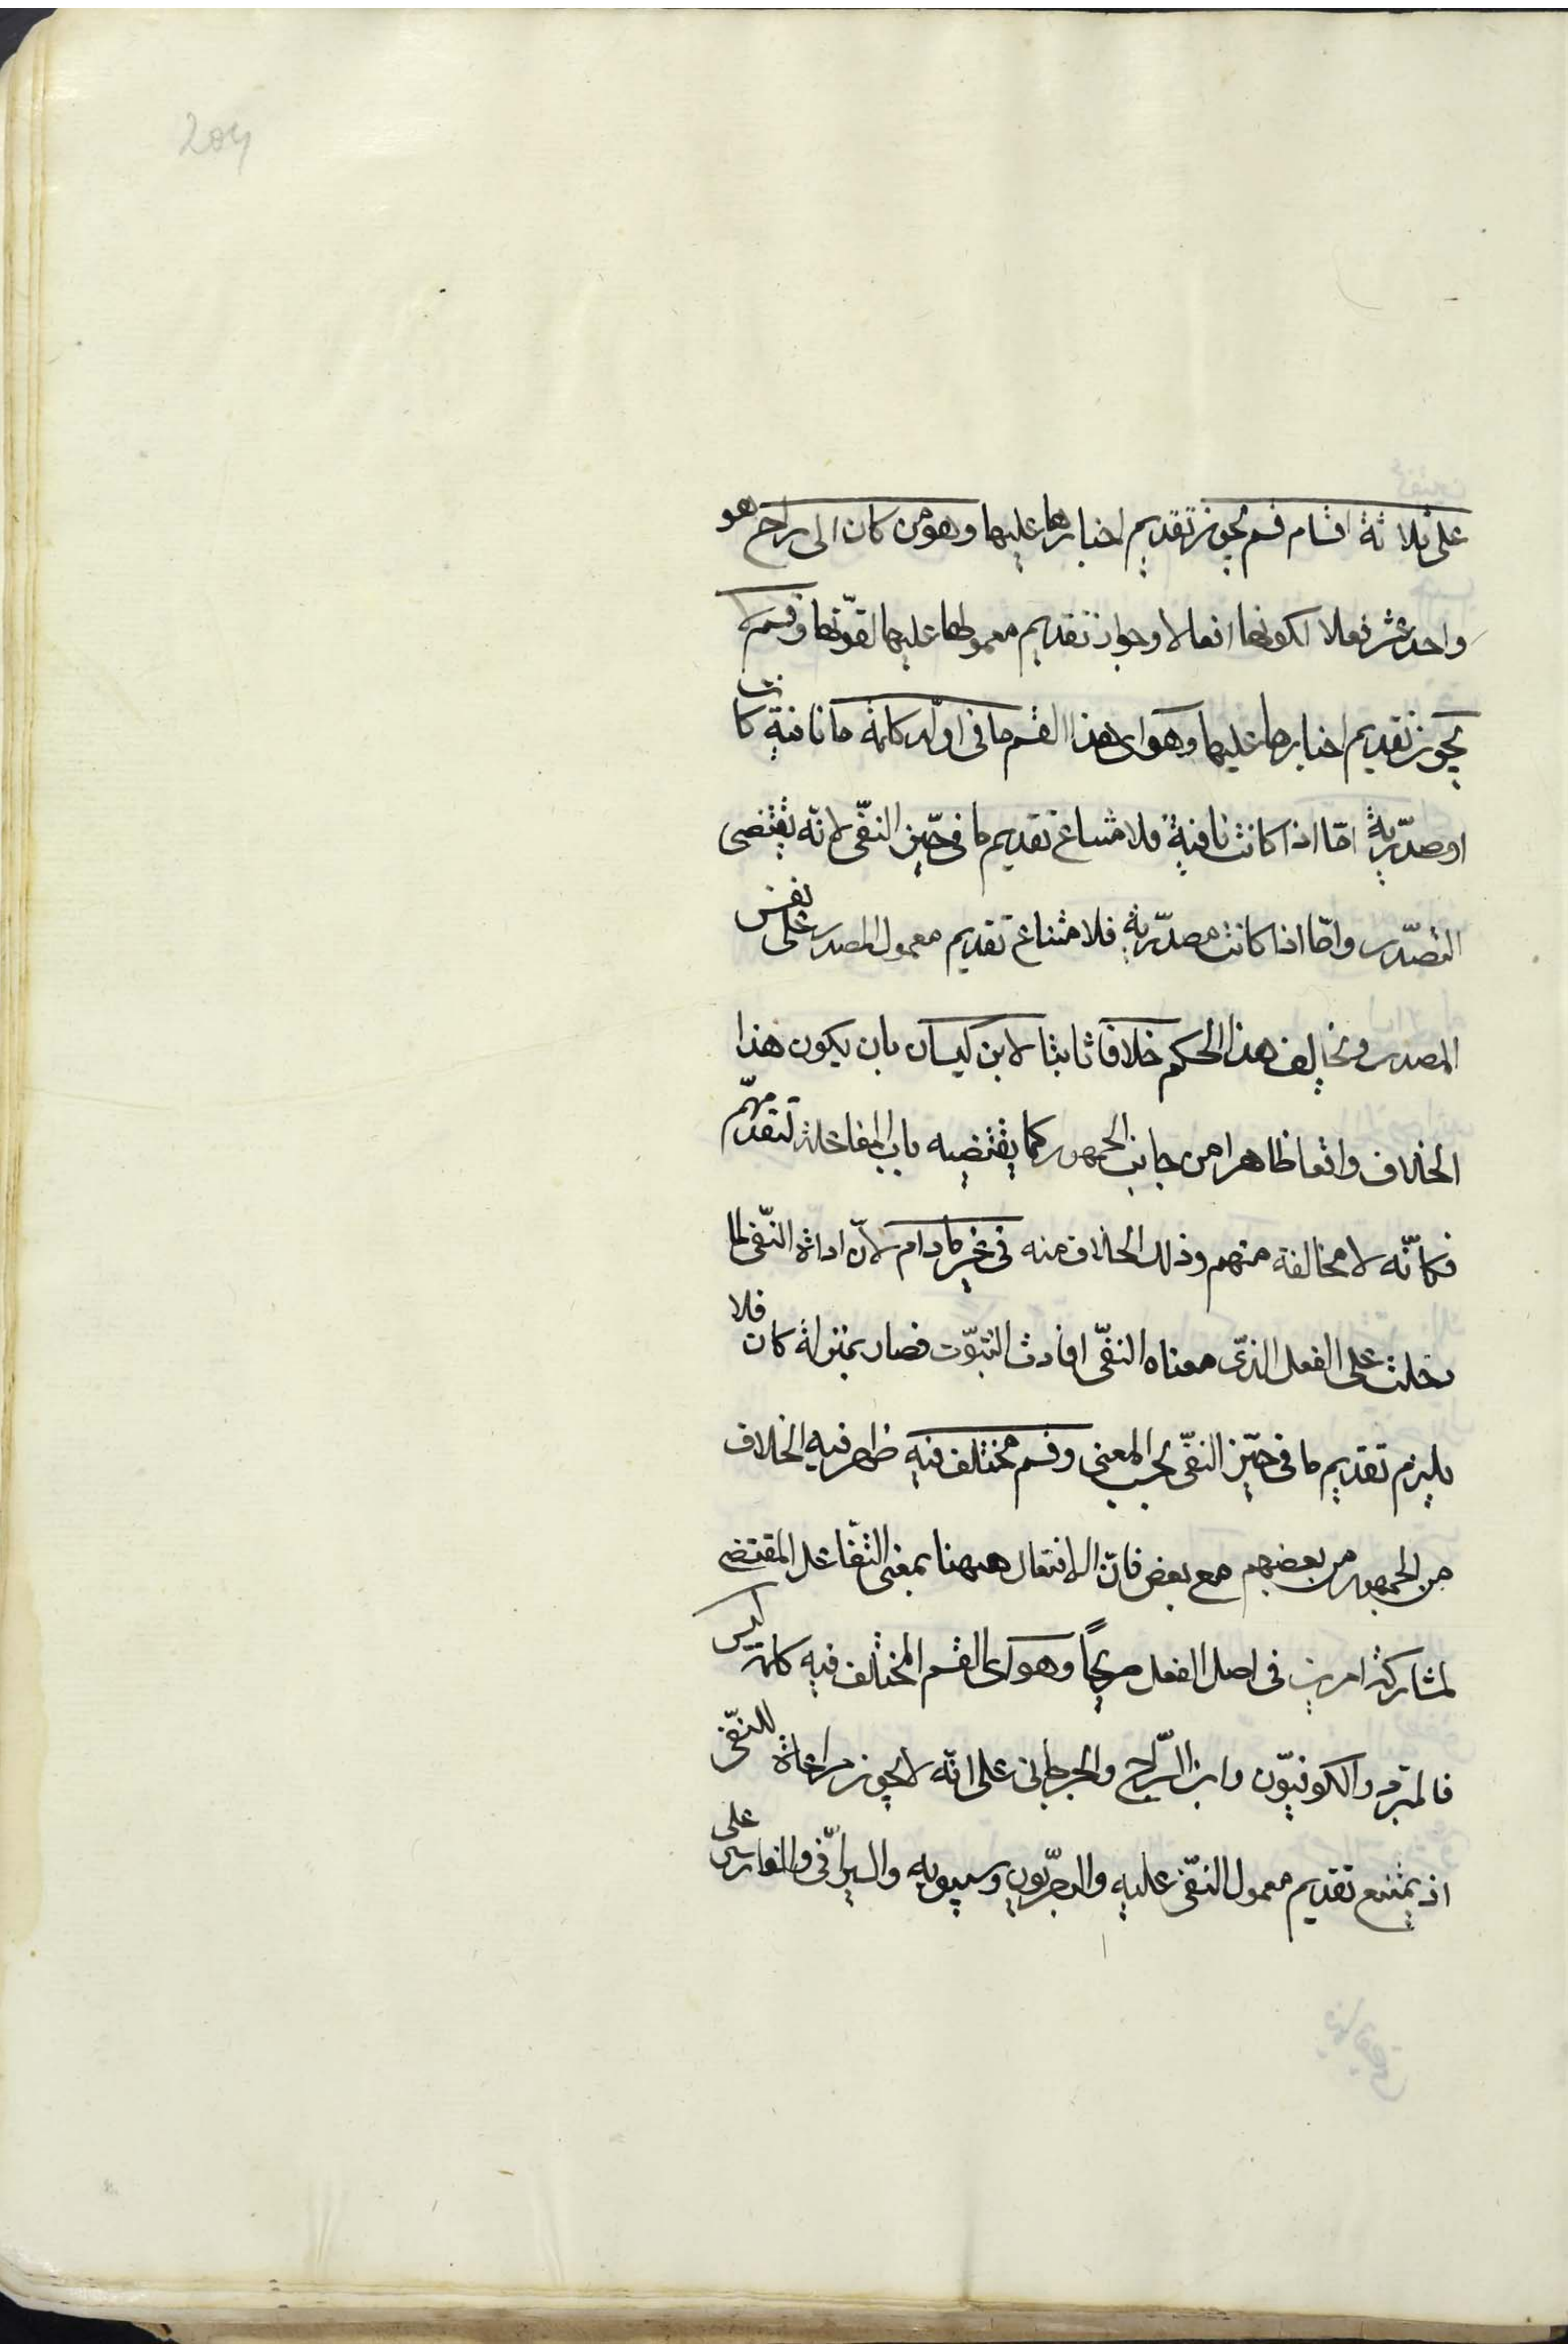 204
على ثلاثة اقسام قسم يجوز تقديم اخبارها عليها وهو من كان الى راح هو
واحد عشر فعلا لكونها افعالا وجواز تقديم معمولها عليها لقوتها وقسم لا
يجوز تقديم اخبارها عليها وهو اى هذا القسم ما فى اوله كلمة ما نافية كانت
او مصدّرية امّا اذا كانت نافية فلامتناع تقديم ما فى حيّز النفّى لانّه يقتضى
التصدّر وامّا اذا كانت مصدّرية فلامتناع تقديم معمول المصدر على نفس
المصدر ونخالف هذا الحكم خلافا ثابتا لابن كيسان بان يكون هذا
الخلاف واقعا ظاهرا من جانب الجمهور كما يقتضيه باب المفاعلة لتقدّمهم
فكانّه لا مخالفة منهم وذلك الخلاف منه فى غير مادام لانّ اداة النّفى لما
دخلت على الفعل الذّى معناه النفّى افادت الثبّوت فصار بمنزلة كان فلا
يلزم تقديم ما فى حيّز النفّى بحسب المعنى وقسم مختلف فيه ظهر فيه الخلاف
من الجمهور من بعضهم مع بعض فانّ الافتعال ههنا بمعنى التّفاعل المقتضى
لمشاركة امرين فى اصل الفعل صريحًا وهو اى القسم المختلف فيه كلمة ليس
فالمبرّد والكوفيّون وابن السّراج والجرجانى على انّه لا يجوز مراعاة للنّفى
اذ يمتنع تقديم معمول النّفى عليه والبصرّيون وسيبويه والسيرافّى والفارسى على